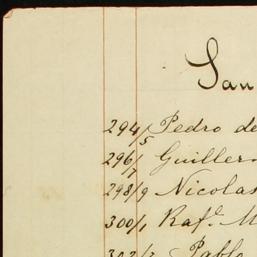 San
294/5 Pedro de
296/7 Guiller
298/9 Nicolas
300/1 Raf.l M
302/3 Pablo